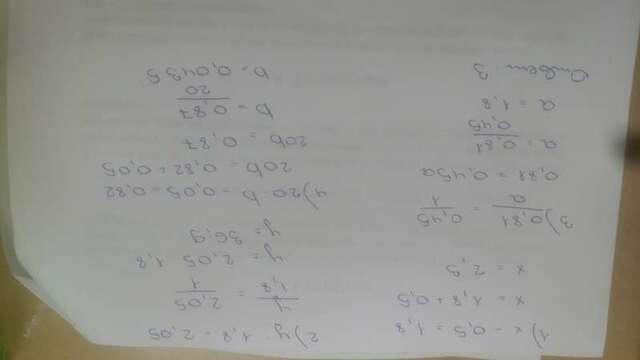 1) x - 0,5 = 1,8
x = 1,8 + 0,5
x = 2,3
3) 0,81/a = 0,45/1
0,81 = 0,45a
a = 0,81/0,45
a = 1,8
Ответ 3
2) y : 1,8 = 2,05
y/1,8 = 2,05/1
y = 2,05 · 1,8
y = 36,9
4) 20 · b - 0,05 = 0,82
20b = 0,82 + 0,05
20b = 0,87
b = 0,87/20
b = 0,0435